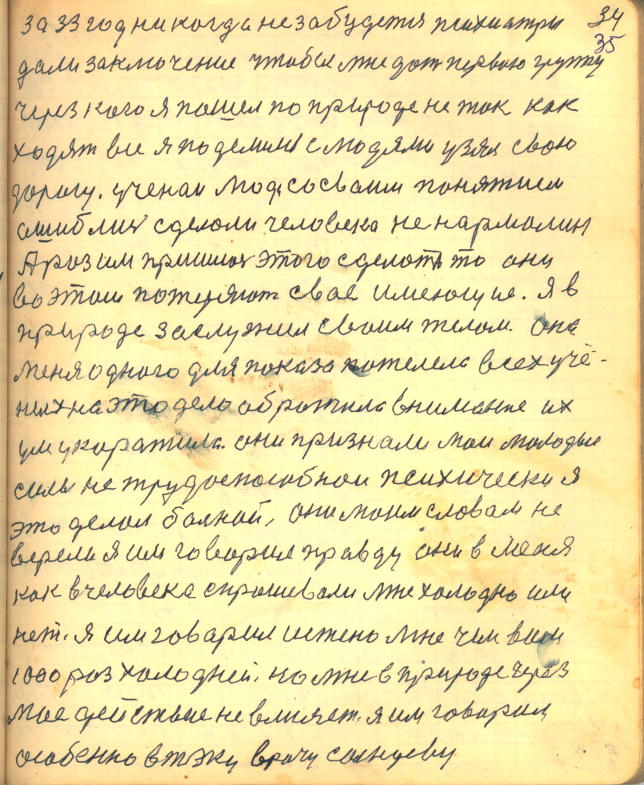 34
35
за 33 год никогда не забудется психиатры
дали заключение чтобы мне дат первою группу
через кого я пошел по природе не так как
ходят все я по делині с людями узял свою
дорогу. учении люди со своим понятием
ошиблис сделали человека не нармалин
А раз им пришлос этого сделать то они
во этом потеряют свае имеющие. Я в
природе заслужил своим телом. она
меня одного для показа жотелела всех учё-
них на это дело обротила внимание их
ум укаратила. они признали мои молодые
силы не трудоспособной психически я
это делал балной, они моим словам не
верели я им говорил правду они в меня
как в человека спрашевали мне холодно или
нет. я им говарил истено мне чим вам
1000 раз холодней. но мне в природе через
мое действие не влияет. я им говорил
особенно втэку врачу солнцеву